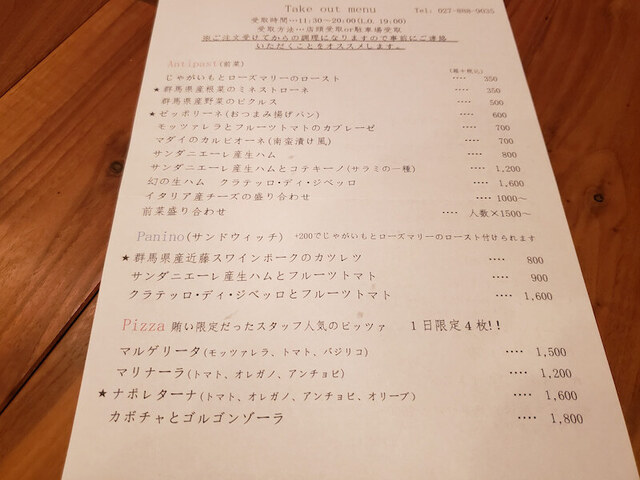 Take out menu Tel: 027-898-9035
受取時間…11:30～20:00(L.O. 19:00)
受取方法…店頭受取or駐車場受取
※ご注文受けてからの調理になりますので事前にご連絡
いただくことをオススメします。
Antipast(前菜) (縦ケ税込)
じゃがいもとローズマリーのロースト ···· 350
★群馬県産根菜のミネストローネ ···· 350
群馬県産野菜のピクルス ···· 500
★ゼッポリーネ(おつまみ揚げパン) ···· 600
モッツァレラとフルーツトマトのカプレーゼ ···· 700
マダイのカルピオーネ(南蛮漬け風) ···· 700
サンダニエーレ産生ハム ···· 800
サンダニエーレ産生ハムとコテキーノ(サラミの一種) ···· 1,200
幻の生ハム クラテッロ・ディ・ジベッロ ···· 1,600
イタリア産チーズの盛り合わせ ···· 1000～
前菜盛り合わせ ···· 人数×1500～
Panino(サンドウィッチ) +200でじゃがいもとローズマリーのロースト付けられます
★群馬県産近藤スワインポークのカツレツ ···· 800
サンダニエーレ産生ハムとフルーツトマト ···· 900
クラテッロ・ディ・ジベッロとフルーツトマト ···· 1,600
Pizza 賄い限定だったスタッフ人気のピッツァ 1日限定4枚!!
マルゲリータ(モッツァレラ、トマト、バジリコ) ···· 1,500
マリナーラ(トマト、オレガノ、アンチョビ) ···· 1,200
★ナポレターナ(トマト、オレガノ、アンチョビ、オリーブ) ···· 1,600
カボチャとゴルゴンゾーラ ···· 1,800